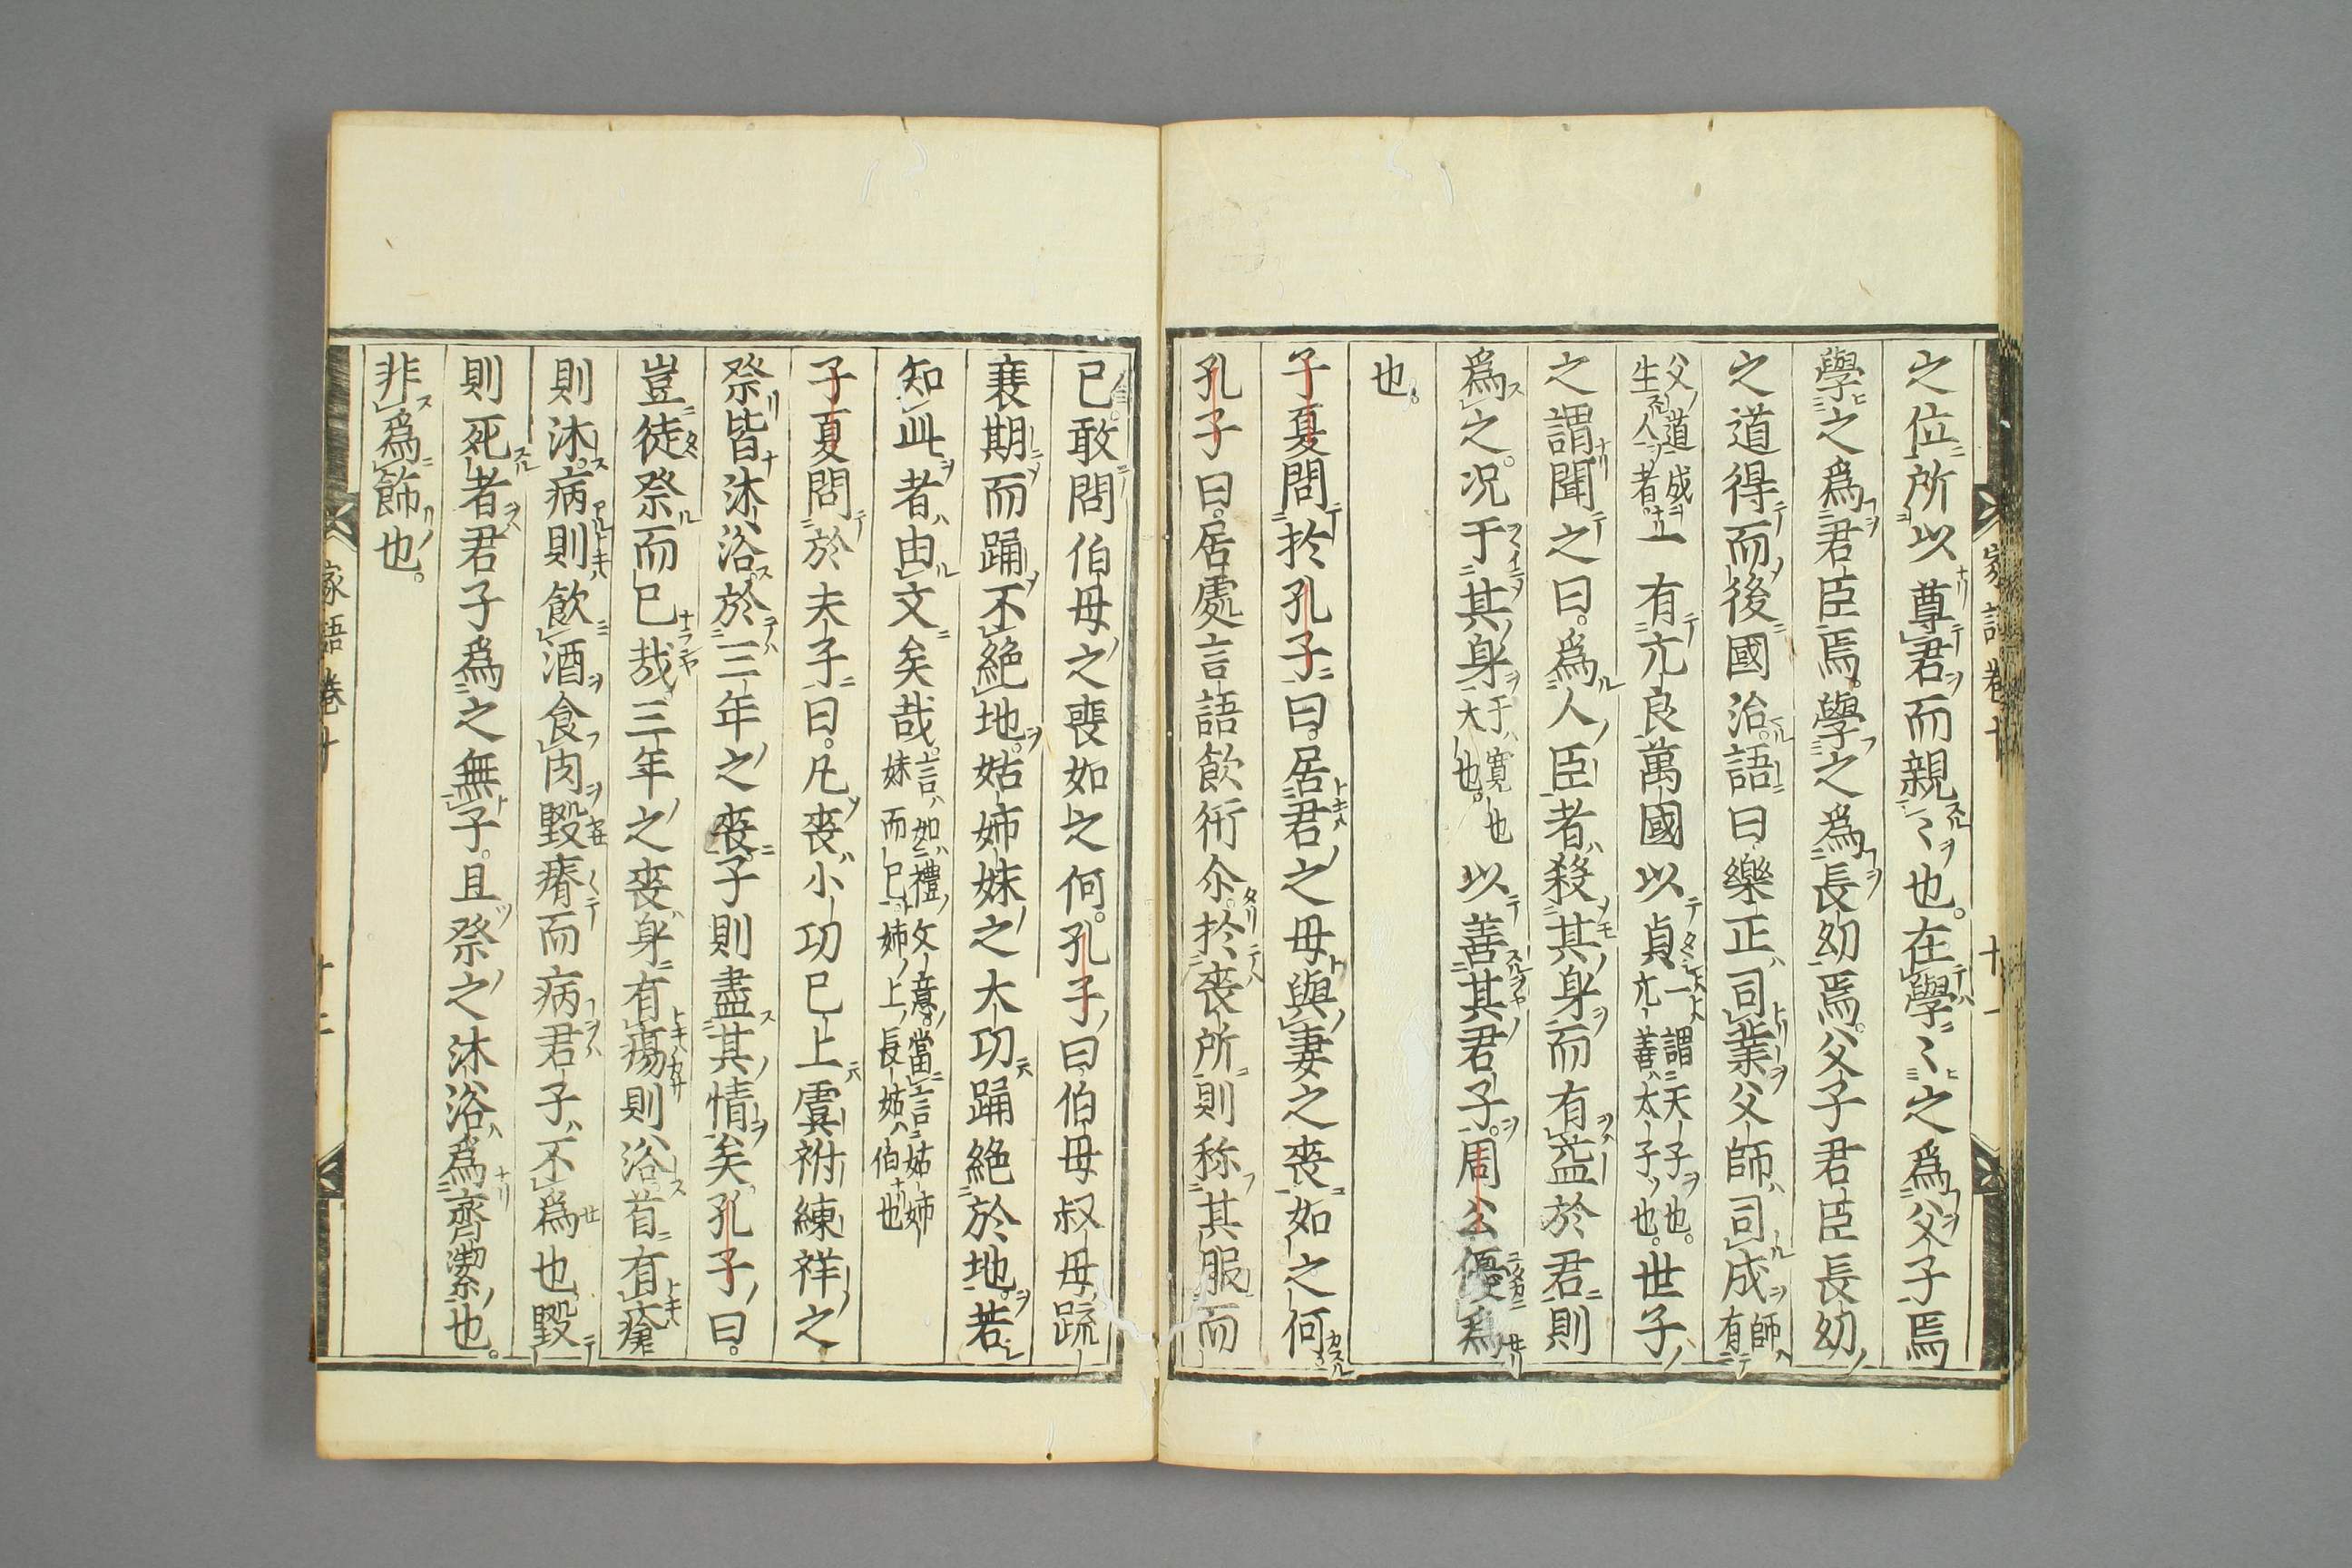 之位所以尊君而親〻也。在學〻之爲父子焉
學之爲君臣焉。學之爲長幼焉。父子君臣長幼
之道得而後國治。語曰樂正司業父師司成師有
父道成生人者 一有亢良萬國以貞一謂天子也。亢善太子也。世子
之謂聞之曰。爲人臣者殺其身而有益於君則
爲之。況于其身于寬也大也。以善其君子。周公優爲
也。
子夏問於孔子曰。居君之母與妻之喪如之何
孔子曰。居處言語飲衎尒。於喪所則称其服而
已敢問伯母之喪如之何。孔子曰伯母叔母疏
衰期而踊不絕地。姑姉妹之大功踊絕於地。若
知此者由文矣哉。言如禮文意。當言姑姉妹而已姉上長姑伯也
子夏問於夫子曰。凡喪小功已上虞祔練祥之
祭皆沐浴於三年之喪子則盡其情矣。孔子曰。
豈徒祭而已哉三年之喪身有瘍則浴首有瘡
則沐。病則飲酒食肉毀瘠而病君子不爲也毀
則死者君子爲之無子。且祭之沐浴爲齊潔也。
非爲飾也。
家語卷十 十一
家語卷十 十二